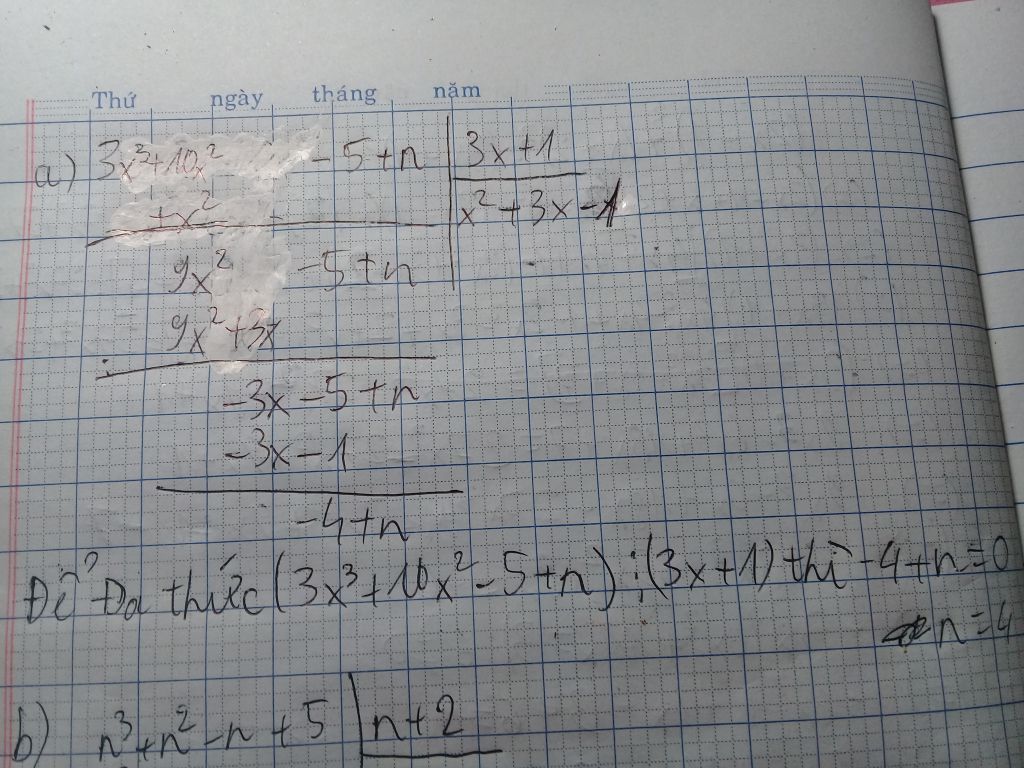 Thứ ngày tháng năm
a) 3x³+10x² -5+n | 3x+1
+x² | x²+3x-1
9x² -5+n
9x²+3x
-3x-5+n
-3x-1
-4+n
Để Đa thức (3x³+10x²-5+n)⋮(3x+1) thì -4+n=0
n=4
b) n³+n²-n+5 | n+2